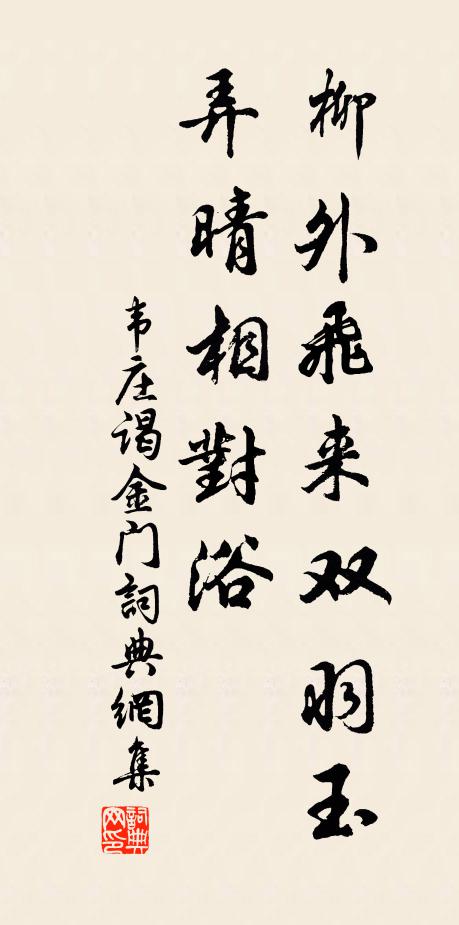 柳外飛来双羽玉
弄晴相對浴
韦庄谒金门詞典網集
詞典网印